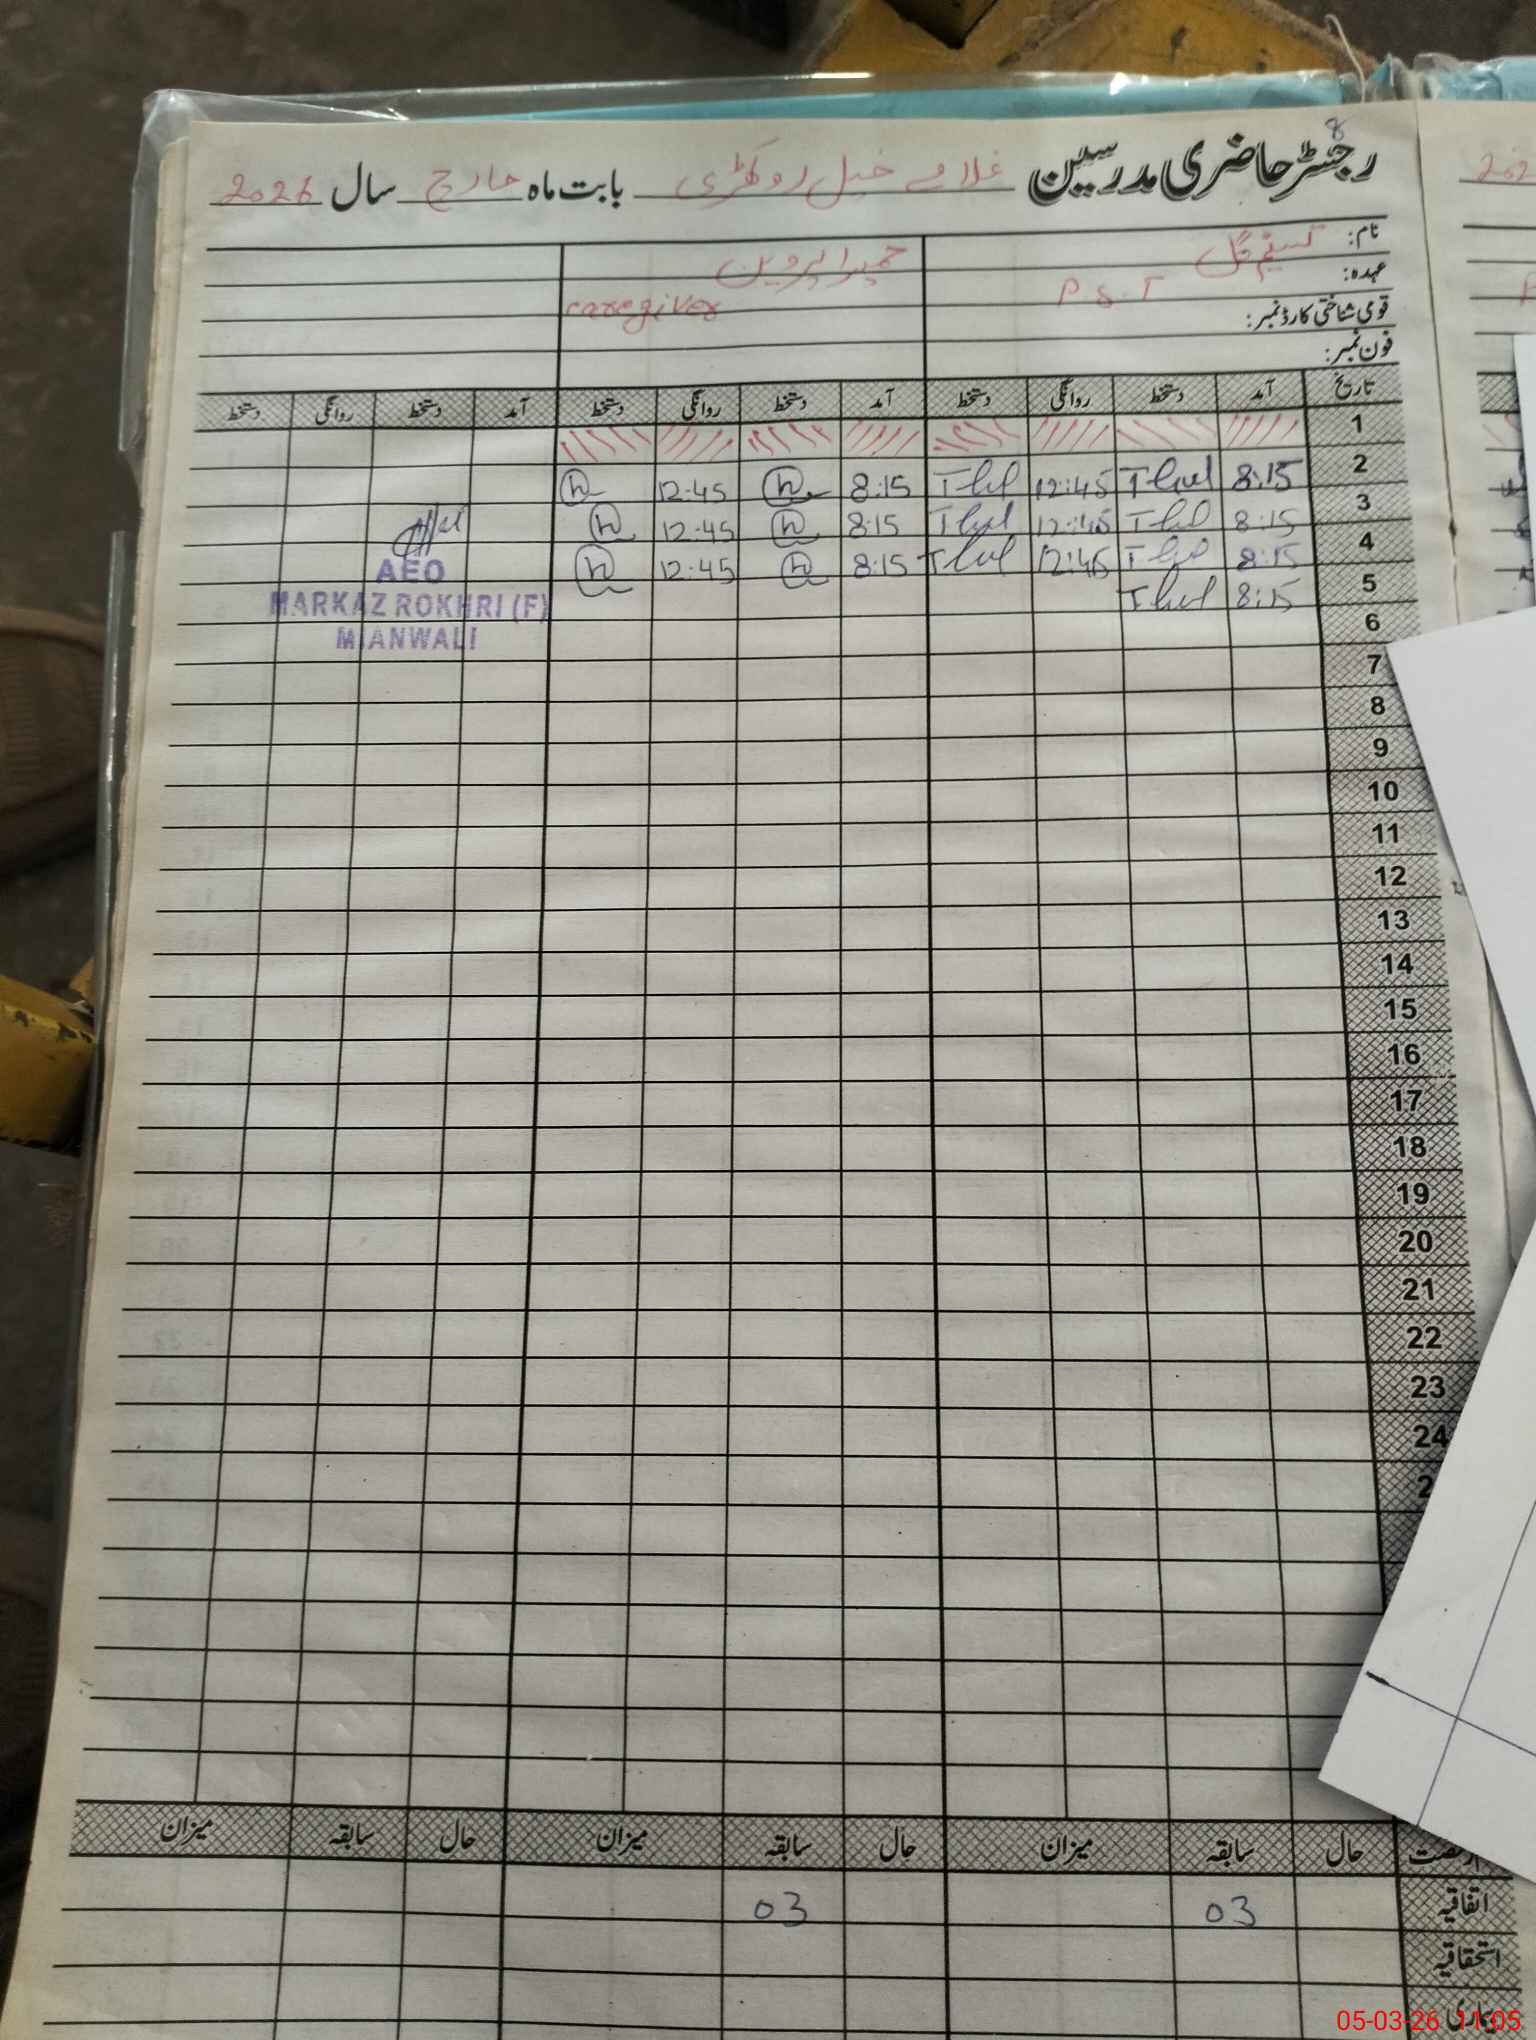 8
رجسٹر حاضری مدرسین غلامے خیل روکھڑی بابت ماہ مارچ سال 2026
نام: تسنیم گل حمیرا پروین
عہدہ: P.S.T caregiver
قومی شناختی کارڈ نمبر:
فون نمبر:
تاریخ آمد دستخط روانگی دستخط آمد دستخط روانگی دستخط آمد دستخط روانگی دستخط
1
2 8:15 12:45 8:15 12:45
3 8:15 12:45 8:15 12:45
4 8:15 12:45 8:15 12:45
5 8:15
AEO
MARKAZ ROKHRI (F)
MIANWALI
6
7
8
9
10
11
12
13
14
15
16
17
18
19
20
21
22
23
24
2
حال سابقہ میزان حال سابقہ میزان حال سابقہ میزان
اتفاقیہ 03 03
استحقاقیہ
بیماری
05-03-26 11:05